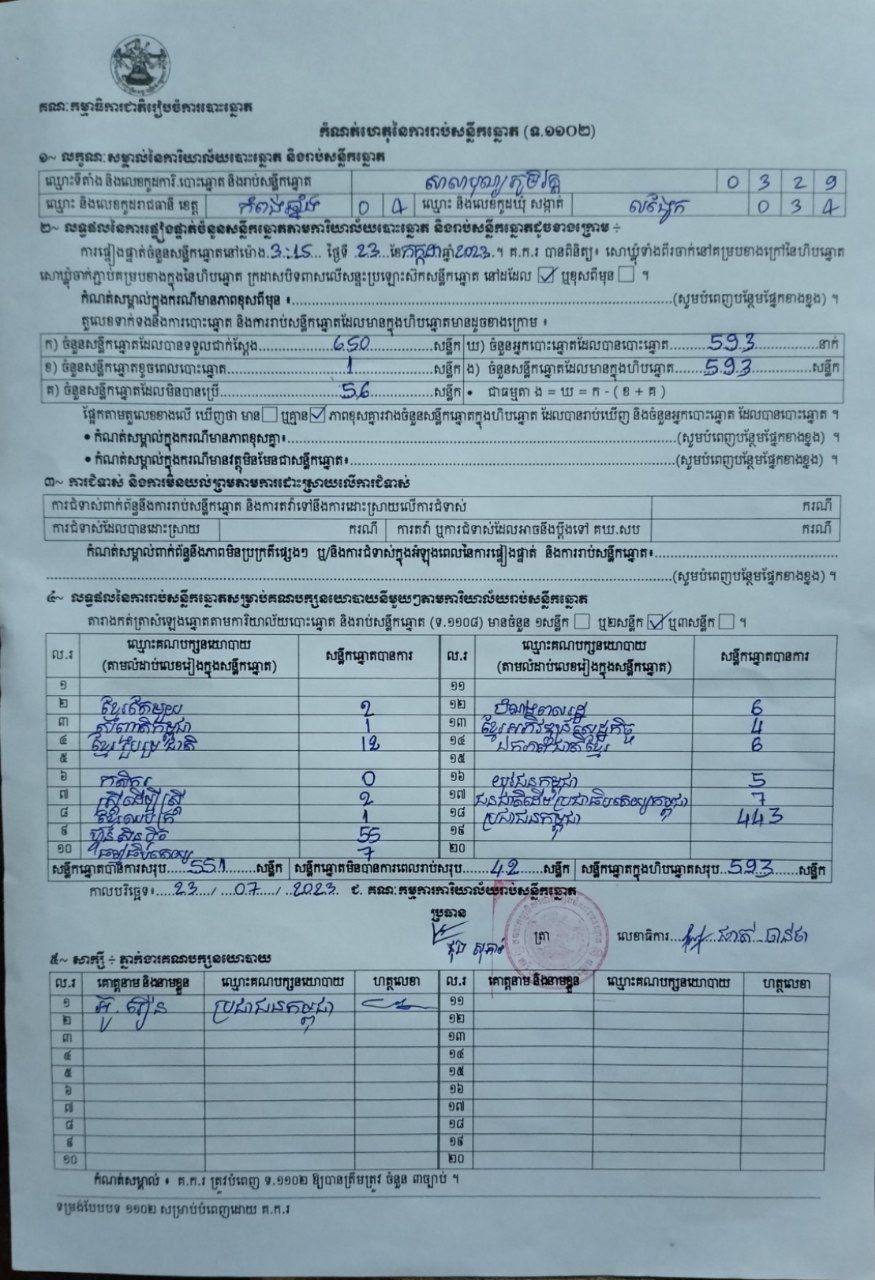 គណៈកម្មាធិការជាតិរៀបចំការបោះឆ្នោត
កំណត់ហេតុនៃការរាប់សន្លឹកឆ្នោត (ទ.១១០២)
១~ លក្ខណៈសម្គាល់នៃការិយាល័យបោះឆ្នោត និងរាប់សន្លឹកឆ្នោត
ឈ្មោះទីតាំង និងលេខកូដការិ.បោះឆ្នោត និងរាប់សន្លឹកឆ្នោត 0 3 2 9
ឈ្មោះ និងលេខកូដរាជធានី ខេត្ត កំពង់ឆ្នាំង 0 4 ឈ្មោះ និងលេខកូដឃុំ សង្កាត់ លង្វែក 0 3 4
២~ លទ្ធផលនៃការផ្ទៀងផ្ទាត់ចំនួនសន្លឹកឆ្នោតតាមការិយាល័យបោះឆ្នោត និងរាប់សន្លឹកឆ្នោតដូចខាងក្រោម ÷
ការផ្ទៀងផ្ទាត់ចំនួនសន្លឹកឆ្នោតនៅម៉ោង 3:15 ថ្ងៃទី 23 ខែ កក្កដា ឆ្នាំ 2023 ។ គ.ក.រ បានពិនិត្យ៖ សោឃ្មុំទាំងពីរចាក់នៅគម្របខាងក្រៅនៃហិបឆ្នោត
សោឃ្មុំចាក់ភ្ជាប់គម្របខាងក្នុងនៃហិបឆ្នោត ក្រដាសបិទពាសលើសន្ទះប្រឡោះស៊កសន្លឹកឆ្នោត នៅដដែល ☑ ឬខុសពីមុន ☐ ។
កំណត់សម្គាល់ក្នុងករណីមានភាពខុសពីមុន ៖ (សូមបំពេញបន្ថែមផ្នែកខាងខ្នង) ។
តួលេខទាក់ទងនឹងការបោះឆ្នោត និងការរាប់សន្លឹកឆ្នោតដែលមានក្នុងហិបឆ្នោតមានដូចខាងក្រោម ៖
ក) ចំនួនសន្លឹកឆ្នោតដែលបានទទួលជាក់ស្ដែង 650 សន្លឹក ឃ) ចំនួនអ្នកបោះឆ្នោតដែលបានបោះឆ្នោត 593 នាក់
ខ) ចំនួនសន្លឹកឆ្នោតខូចពេលបោះឆ្នោត 1 សន្លឹក ង) ចំនួនសន្លឹកឆ្នោតដែលមានក្នុងហិបឆ្នោត 593 សន្លឹក
គ) ចំនួនសន្លឹកឆ្នោតដែលមិនបានប្រើ 56 សន្លឹក • ជាធម្មតា ង = ឃ = ក - ( ខ + គ )
ផ្អែកតាមតួលេខខាងលើ ឃើញថា មាន ☐ ឬគ្មាន ☑ ភាពខុសគ្នារវាងចំនួនសន្លឹកឆ្នោតក្នុងហិបឆ្នោត ដែលបានរាប់ឃើញ និងចំនួនអ្នកបោះឆ្នោត ដែលបានបោះឆ្នោត ។
• កំណត់សម្គាល់ក្នុងករណីមានភាពខុសគ្នា៖ (សូមបំពេញបន្ថែមផ្នែកខាងខ្នង) ។
• កំណត់សម្គាល់ក្នុងករណីមានវត្ថុមិនមែនជាសន្លឹកឆ្នោត៖ (សូមបំពេញបន្ថែមផ្នែកខាងខ្នង) ។
៣~ ការជំទាស់ និងការមិនយល់ព្រមតាមការដោះស្រាយលើការជំទាស់
ការជំទាស់ពាក់ព័ន្ធនឹងការរាប់សន្លឹកឆ្នោត និងការតវ៉ាទៅនឹងការដោះស្រាយលើការជំទាស់ ករណី
ការជំទាស់ដែលបានដោះស្រាយ ករណី ការតវ៉ា ឬការជំទាស់ដែលអាចនឹងប្ដឹងទៅ គឃ.សប ករណី
កំណត់សម្គាល់ពាក់ព័ន្ធនឹងភាពមិនប្រក្រតីផ្សេងៗ ឬ/និងការជំទាស់ក្នុងអំឡុងពេលនៃការផ្ទៀងផ្ទាត់ និងការរាប់សន្លឹកឆ្នោត៖
(សូមបំពេញបន្ថែមផ្នែកខាងខ្នង) ។
៤~ លទ្ធផលនៃការរាប់សន្លឹកឆ្នោតសម្រាប់គណបក្សនយោបាយនីមួយៗតាមការិយាល័យរាប់សន្លឹកឆ្នោត
តារាងកត់ត្រាសំឡេងឆ្នោតតាមការិយាល័យបោះឆ្នោត និងរាប់សន្លឹកឆ្នោត (ទ.១១០៨) មានចំនួន ១សន្លឹក ☐ ឬ២សន្លឹក ☑ ឬ៣សន្លឹក ☐ ។
ល.រ ឈ្មោះគណបក្សនយោបាយ (តាមលំដាប់លេខរៀងក្នុងសន្លឹកឆ្នោត) សន្លឹកឆ្នោតបានការ ល.រ ឈ្មោះគណបក្សនយោបាយ (តាមលំដាប់លេខរៀងក្នុងសន្លឹកឆ្នោត) សន្លឹកឆ្នោតបានការ
១ ១១
២ 2 ១២ 6
៣ 1 ១៣ ខ្មែរអភិវឌ្ឍន៍សេដ្ឋកិច្ច 4
៤ ខ្មែររួបរួមជាតិ 12 ១៤ ឯកភាពជាតិខ្មែរ 6
៥ ១៥
៦ កសិករ 0 ១៦ យុវជនកម្ពុជា 5
៧ ស្ត្រីដើម្បីស្ត្រី 2 ១៧ 7
៨ 1 ១៨ ប្រជាជនកម្ពុជា 443
៩ ហ៊្វុនស៊ិនប៉ិច 55 ១៩
១០ 7 ២០
សន្លឹកឆ្នោតបានការសរុប 551 សន្លឹក សន្លឹកឆ្នោតមិនបានការពេលរាប់សរុប 42 សន្លឹក សន្លឹកឆ្នោតក្នុងហិបឆ្នោតសរុប 593 សន្លឹក
កាលបរិច្ឆេទ៖ 23 / 07 / 2023 ជ. គណៈកម្មការការិយាល័យរាប់សន្លឹកឆ្នោត
ប្រធាន
ត្រា លេខាធិការ
៥~ សាក្សី ÷ ភ្នាក់ងារគណបក្សនយោបាយ
ល.រ គោត្តនាម និងនាមខ្លួន ឈ្មោះគណបក្សនយោបាយ ហត្ថលេខា ល.រ គោត្តនាម និងនាមខ្លួន ឈ្មោះគណបក្សនយោបាយ ហត្ថលេខា
១ ប្រជាជនកម្ពុជា ១១
២ ១២
៣ ១៣
៤ ១៤
៥ ១៥
៦ ១៦
៧ ១៧
៨ ១៨
៩ ១៩
១០ ២០
កំណត់សម្គាល់ ៖ គ.ក.រ ត្រូវបំពេញ ទ.១១០២ ឱ្យបានត្រឹមត្រូវ ចំនួន ៣ច្បាប់ ។
ទម្រង់បែបបទ ១១០២ សម្រាប់បំពេញដោយ គ.ក.រ